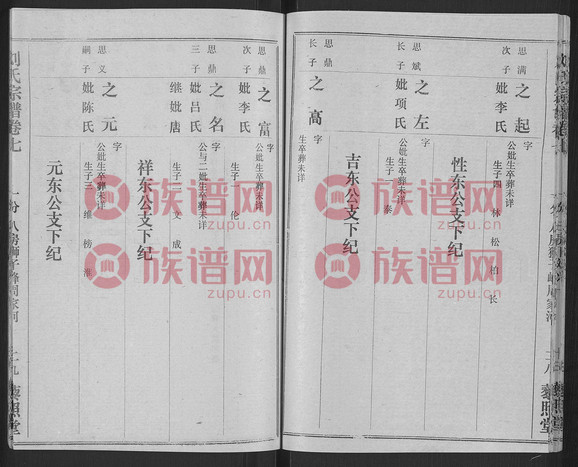 思满
次子
之起
妣李氏
字
公妣生卒葬未详
生子四 林 松 柏 长
性东公支下纪
思斌
长子
之左
妣项氏
字
公妣生卒葬未详
生子一 泰
吉东公支下纪
思鼎
长子
之高
字
生卒葬未详
思鼎
次子
之富
妣李氏
字
公妣生卒葬未详
生子一 伦
思鼎
三子
之名
妣吕氏
继妣唐
字
公与二妣生卒葬未详
生子二 文 成
祥东公支下纪
思义
嗣子
之元
妣陈氏
字
公妣生卒葬未详
生子三 维 榜
元东公支下纪
刘氏宗谱卷七
十九
藜照堂
藜照堂
族谱网
zupu.cn
族谱网
zupu.cn
族谱网
zupu.cn
族谱网
zupu.cn
族谱网
zupu.cn
族谱网
zupu.cn